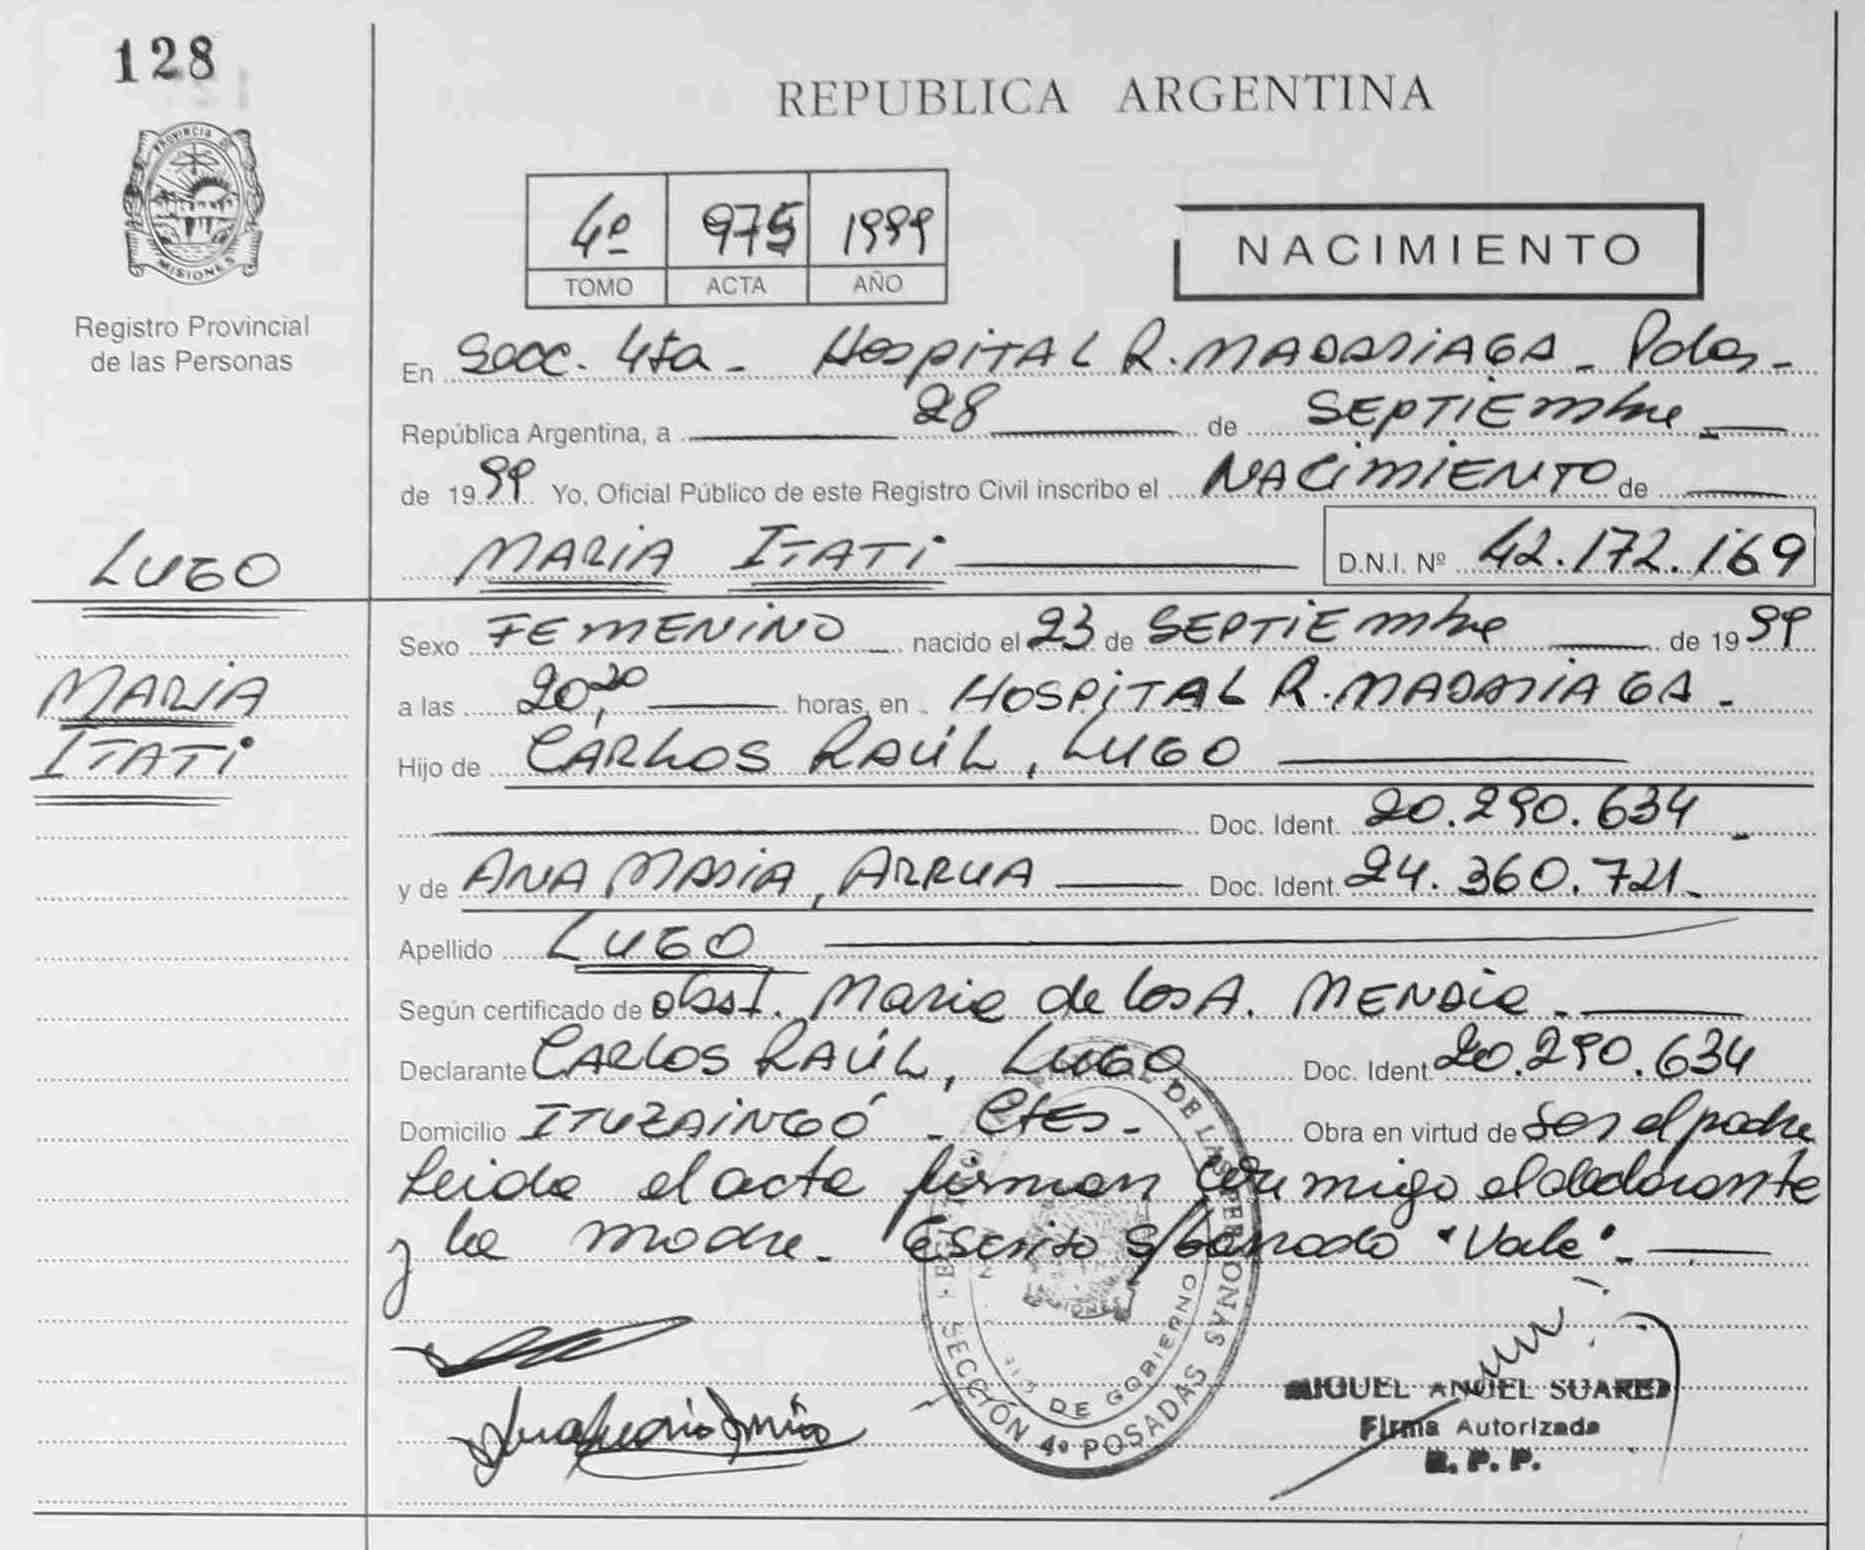 128
REPUBLICA ARGENTINA
PROVINCIA DE
MISIONES
Registro Provincial
de las Personas
4º 975 1999
TOMO ACTA AÑO
NACIMIENTO
En Secc. 4ta - HOSPITAL R. MADARIAGA - Pdas -
República Argentina, a 28 de SEPTIEMbre
de 1999 Yo, Oficial Público de este Registro Civil inscribo el NACIMIENTO de
LUGO
MARIA ITATI D.N.I. Nº 42.172.169
Sexo FEMENINO nacido el 23 de SEPTIEMbre de 1999
MARIA
a las 20,20 horas, en HOSPITAL R. MADARIAGA -
ITATI
Hijo de CARLOS RAÚL, LUGO
Doc. Ident. 20.290.634
y de ANA MARIA, ARRUA Doc. Ident. 24.360.721
Apellido LUGO
Según certificado de obst. Maria de los A. MENDIE
Declarante CARLOS RAÚL, LUGO Doc. Ident. 20.290.634
Domicilio ITUZAINGÓ - Ctes - Obra en virtud de ser el padre
Leida el acta firman conmigo el declarante
y la madre - Escrito s/borrado "Vale" -
DE LAS PERSONAS
SECCIÓN 4º POSADAS
DE GOBIERNO
MIGUEL ANGEL SUAREZ
Firma Autorizada
R. P. P.